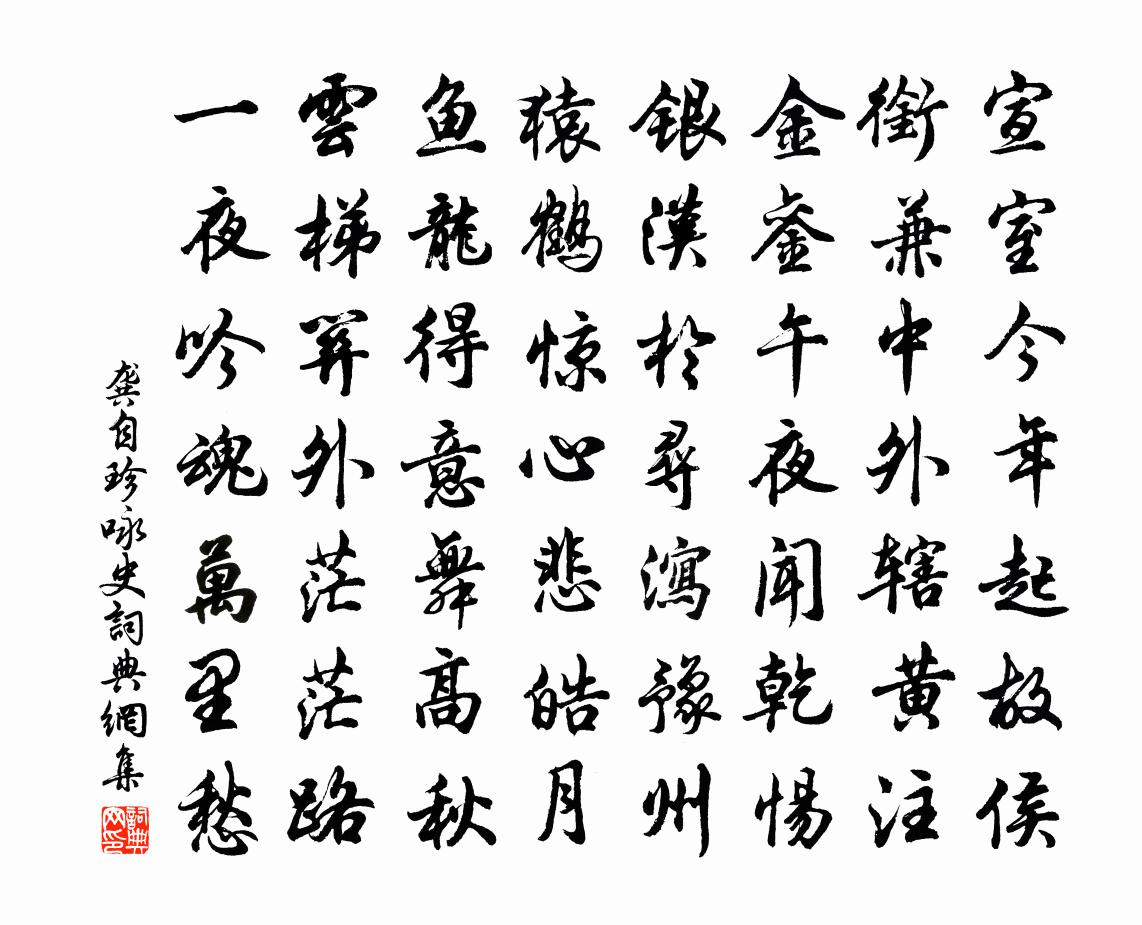 宣室今年起故侯
銜兼中外辖黄注
金銮午夜闻乾惕
银漢於尋瀉豫州
猿鶴惊心悲皓月
鱼龍得意舞高秋
雲梯関外茫茫路
一夜吟魂萬里愁
龔自珍咏史詞典網集
詞典网印